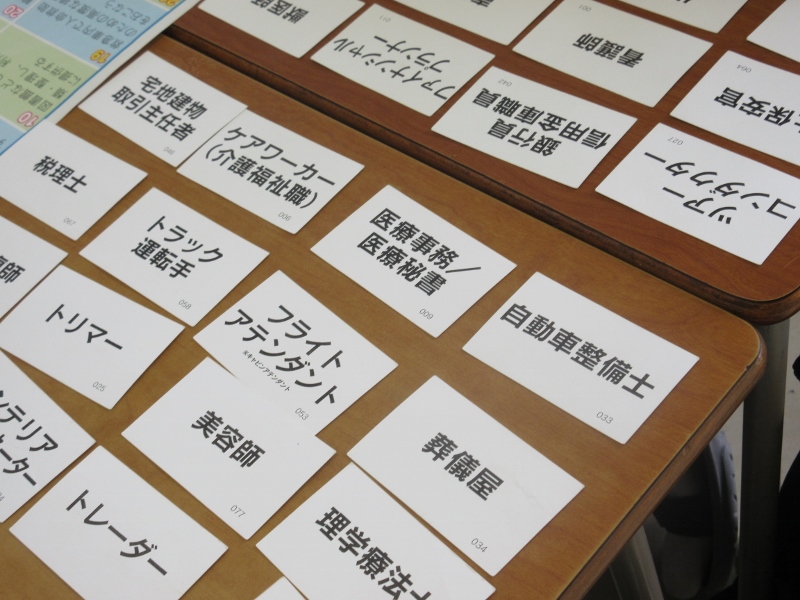 獣医師
ファイナンシャル
プランナー
011
看護師
001
保安官
064
銀行員
信用金庫職員
042
ツアー
コンダクター
027
宅地建物
取引主任者
ケアワーカー
(介護福祉職)
006
税理士
トラック
運転手
058
009
自動車整備士
033
師
トリマー
025
フライト
アテンダント
※キャビンアテンダント
053
美容師
077
葬儀屋
034
ンテリア
ーター
トレーダー
理学療法士